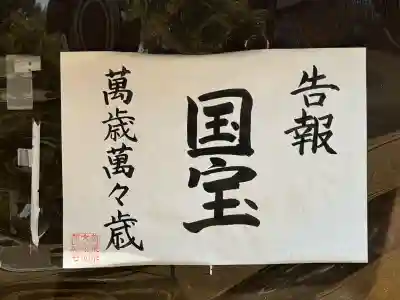 告報
国宝
萬歳萬々歳